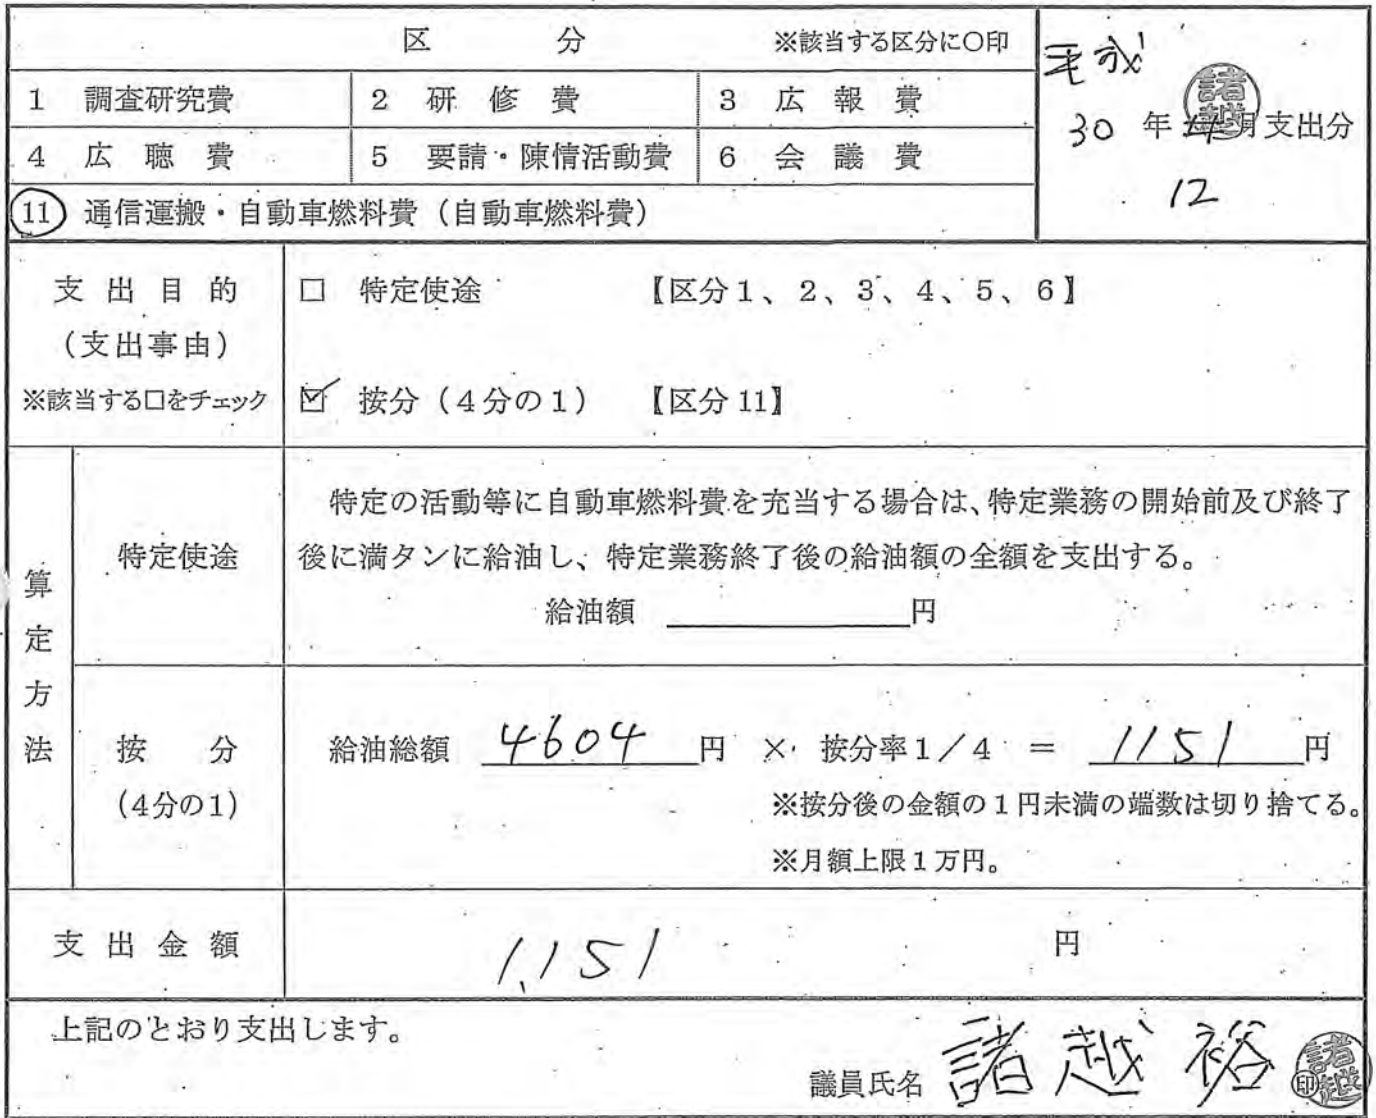 区 分 ※該当する区分に○印
平成
1 調査研究費 2 研修費 3 広報費
30 年 月支出分
4 広聴費 5 要請・陳情活動費 6 会議費
12
11 通信運搬・自動車燃料費(自動車燃料費)
支出目的 □ 特定使途 【区分1、2、3、4、5、6】
(支出事由)
※該当する□をチェック ☑ 按分(4分の1) 【区分11】
算定方法
特定使途
特定の活動等に自動車燃料費を充当する場合は、特定業務の開始前及び終了
後に満タンに給油し、特定業務終了後の給油額の全額を支出する。
給油額 円
按分 給油総額 4604 円 × 按分率1/4 = 1151 円
(4分の1) ※按分後の金額の1円未満の端数は切り捨てる。
※月額上限1万円。
支出金額 1,151 円
上記のとおり支出します。
議員氏名 諸越 裕 印
諸越